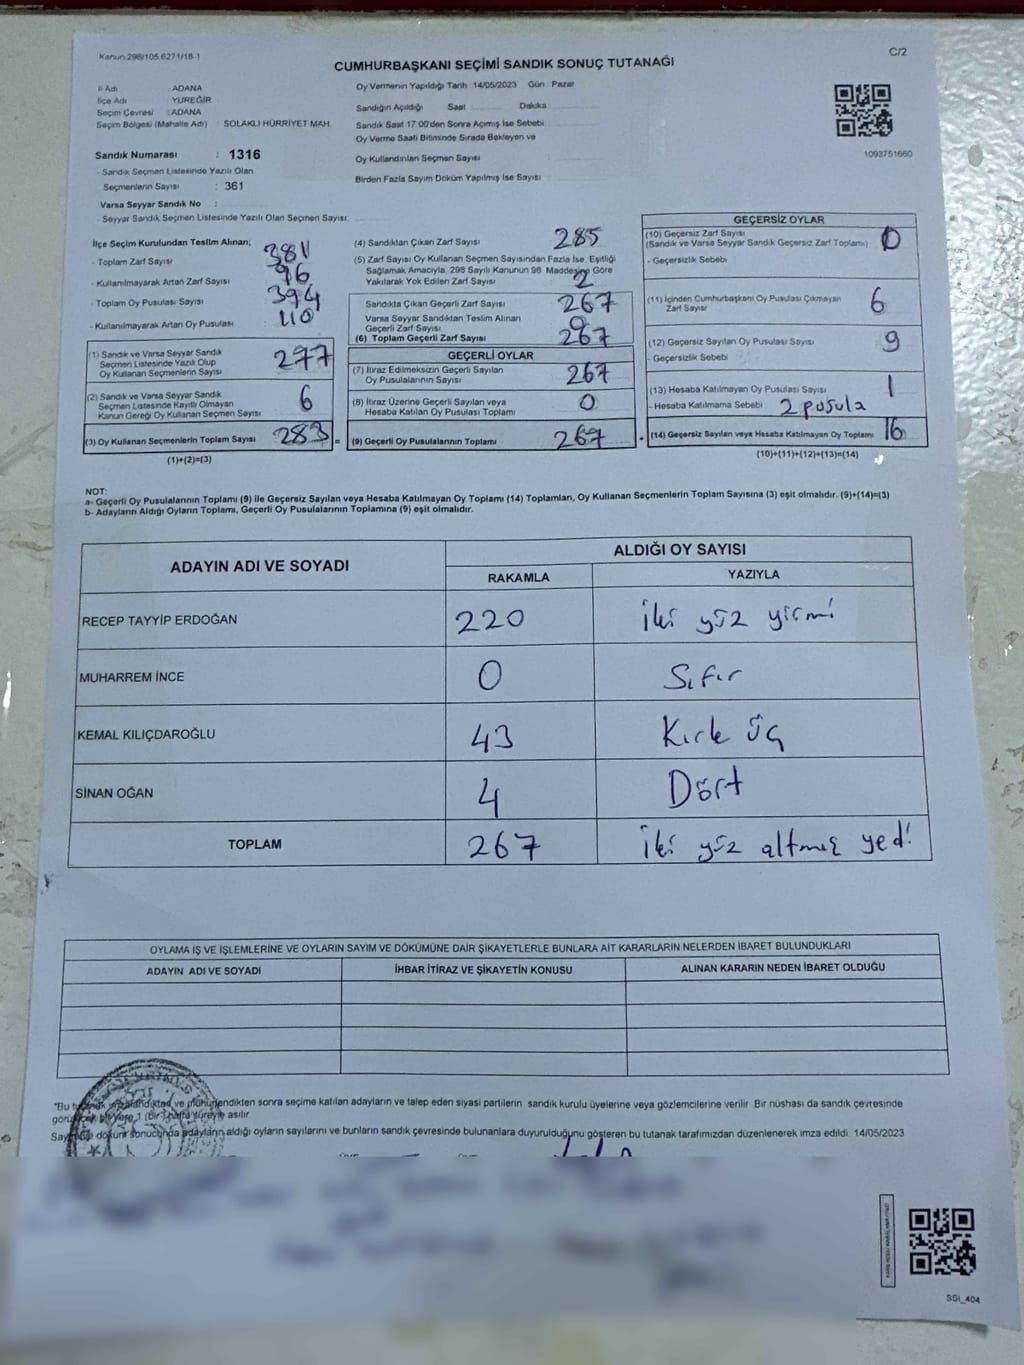 Kanun 298/105.6271/18-1
C/2
CUMHURBAŞKANI SEÇİMİ SANDIK SONUÇ TUTANAĞI
İl Adı ADANA
İlçe Adı : YÜREĞİR
Seçim Çevresi : ADANA
Seçim Bölgesi (Mahalle Adı) : SOLAKLI HÜRRİYET MAH.
Sandık Numarası : 1316
- Sandık Seçmen Listesinde Yazılı Olan
Seçmenlerin Sayısı : 361
Varsa Seyyar Sandık No :
- Seyyar Sandık Seçmen Listesinde Yazılı Olan Seçmen Sayısı:
Oy Vermenin Yapıldığı Tarih : 14/05/2023 Gün : Pazar
Sandığın Açıldığı Saat Dakika
Sandık Saat 17:00'den Sonra Açılmış İse Sebebi
Oy Verme Saati Bitiminde Sırada Bekleyen ve
Oy Kullandırılan Seçmen Sayısı :
Birden Fazla Sayım Döküm Yapılmış İse Sayısı
1093751660
İlçe Seçim Kurulundan Teslim Alınan;
- Toplam Zarf Sayısı 381
- Kullanılmayarak Artan Zarf Sayısı 96
- Toplam Oy Pusulası Sayısı 394
- Kullanılmayarak Artan Oy Pusulası : 110
(1) Sandık ve Varsa Seyyar Sandık
Seçmen Listesinde Yazılı Olup
Oy Kullanan Seçmenlerin Sayısı 277
(2) Sandık ve Varsa Seyyar Sandık
Seçmen Listesinde Kayıtlı Olmayan
Kanun Gereği Oy Kullanan Seçmen Sayısı 6
(3) Oy Kullanan Seçmenlerin Toplam Sayısı 283 =
(1)+(2)=(3)
(4) Sandıktan Çıkan Zarf Sayısı 285
(5) Zarf Sayısı Oy Kullanan Seçmen Sayısından Fazla İse, Eşitliği
Sağlamak Amacıyla, 298 Sayılı Kanunun 98. Maddesine Göre
Yakılarak Yok Edilen Zarf Sayısı 2
Sandıkta Çıkan Geçerli Zarf Sayısı 267
Varsa Seyyar Sandıktan Teslim Alınan
Geçerli Zarf Sayısı 0
(6) Toplam Geçerli Zarf Sayısı 267
GEÇERLİ OYLAR
(7) İtiraz Edilmeksizin Geçerli Sayılan
Oy Pusulalarının Sayısı 267
(8) İtiraz Üzerine Geçerli Sayılan veya
Hesaba Katılan Oy Pusulası Toplamı 0
(9) Geçerli Oy Pusulalarının Toplamı 267 +
GEÇERSİZ OYLAR
(10) Geçersiz Zarf Sayısı
(Sandık ve Varsa Seyyar Sandık Geçersiz Zarf Toplamı) 0
- Geçersizlik Sebebi
(11) İçinden Cumhurbaşkanı Oy Pusulası Çıkmayan
Zarf Sayısı 6
(12) Geçersiz Sayılan Oy Pusulası Sayısı 9
- Geçersizlik Sebebi
(13) Hesaba Katılmayan Oy Pusulası Sayısı 1
- Hesaba Katılmama Sebebi 2 pusula
(14) Geçersiz Sayılan veya Hesaba Katılmayan Oy Toplamı 16
(10)+(11)+(12)+(13)=(14)
NOT:
a- Geçerli Oy Pusulalarının Toplamı (9) ile Geçersiz Sayılan veya Hesaba Katılmayan Oy Toplamı (14) Toplamları, Oy Kullanan Seçmenlerin Toplam Sayısına (3) eşit olmalıdır. (9)+(14)=(3)
b- Adayların Aldığı Oyların Toplamı, Geçerli Oy Pusulalarının Toplamına (9) eşit olmalıdır.
ADAYIN ADI VE SOYADI ALDIĞI OY SAYISI
RAKAMLA YAZIYLA
RECEP TAYYİP ERDOĞAN 220 İki yüz yirmi
MUHARREM İNCE 0 Sıfır
KEMAL KILIÇDAROĞLU 43 Kırk üç
SİNAN OĞAN 4 Dört
TOPLAM 267 İki yüz altmış yedi
OYLAMA İŞ VE İŞLEMLERİNE VE OYLARIN SAYIM VE DÖKÜMÜNE DAİR ŞİKAYETLERLE BUNLARA AİT KARARLARIN NELERDEN İBARET BULUNDUKLARI
ADAYIN ADI VE SOYADI İHBAR İTİRAZ VE ŞİKAYETİN KONUSU ALINAN KARARIN NEDEN İBARET OLDUĞU
"Bu tutanak imzalandıktan ve mühürlendikten sonra seçime katılan adayların ve talep eden siyasi partilerin sandık kurulu üyelerine veya gözlemcilerine verilir. Bir nüshası da sandık çevresinde
görülecek bir yere 1 (bir) hafta süreyle asılır.
Sayım ve döküm sonucunda adayların aldığı oyların sayılarını ve bunların sandık çevresinde bulunanlara duyurulduğunu gösteren bu tutanak tarafımızdan düzenlenerek imza edildi. 14/05/2023
SSI_404